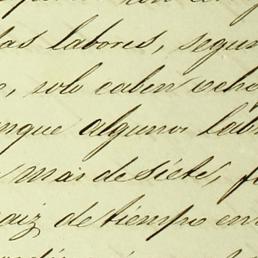 las labores, segun
, solo caben ocho
nque algunos lab
mas de siete, f
aiz de tiempo en